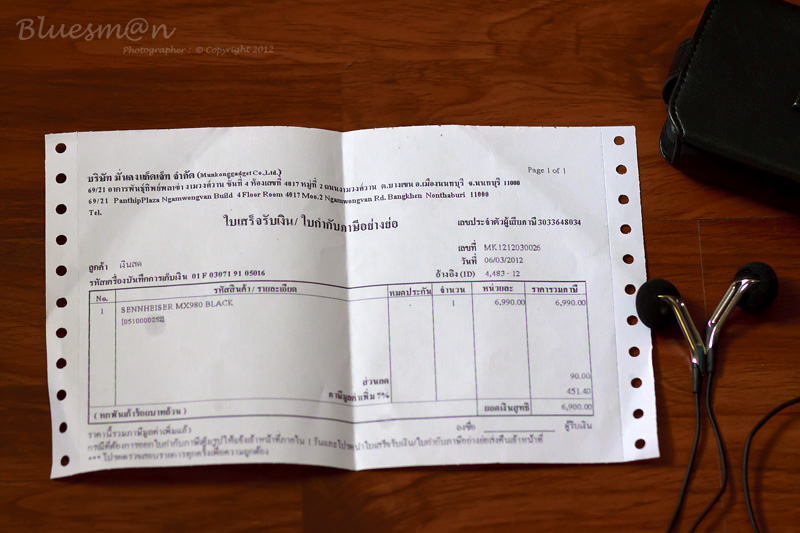 Bluesm@n
Photographer : © Copyright 2012
บริษัท มั่นคงแก็ดเจ็ท จำกัด (Munkonggadget Co.,Ltd.)
Page 1 of 1
69/21 อาคารพันธุ์ทิพย์พลาซ่า งามวงศ์วาน ชั้นที่ 4 ห้องเลขที่ 4017 หมู่ที่ 2 ถนนงามวงศ์วาน ต.บางเขน อ.เมืองนนทบุรี จ.นนทบุรี 11000
69/21 PanthipPlaza Ngamwongvan Build 4 Floor Room 4017 Moo.2 Ngamwongvan Rd. Bangkhen Nonthaburi 11000
Tel.
ใบเสร็จรับเงิน/ ใบกำกับภาษีอย่างย่อ
เลขประจำตัวผู้เสียภาษี 3033648034
เลขที่ MK1212030026
วันที่ 06/03/2012
ลูกค้า เงินสด
อ้างอิง (ID) 4,483 - 12
รหัสเครื่องบันทึกการเก็บเงิน 01 F 03071 91 05016
No. รหัสสินค้า/ รายละเอียด หมดประกัน จำนวน หน่วยละ ราคารวมภาษี
1 SENNHEISER MX980 BLACK - 1 6,990.00 6,990.00
ส่วนลด 90.00
ภาษีมูลค่าเพิ่ม 7% 451.40
( หกพันเก้าร้อยบาทถ้วน ) ยอดเงินสุทธิ 6,900.00
ราคานี้รวมภาษีมูลค่าเพิ่มแล้ว
ลงชื่อ ผู้รับเงิน
กรณีที่ต้องการขอใบกำกับภาษีเต็มรูปให้แจ้งเจ้าหน้าที่ภายใน 1 วันและโปรดนำใบเสร็จรับเงิน/ใบกำกับภาษีอย่างย่อส่งคืนเจ้าหน้าที่
*** โปรดตรวจสอบรายการทุกครั้งเพื่อความถูกต้อง